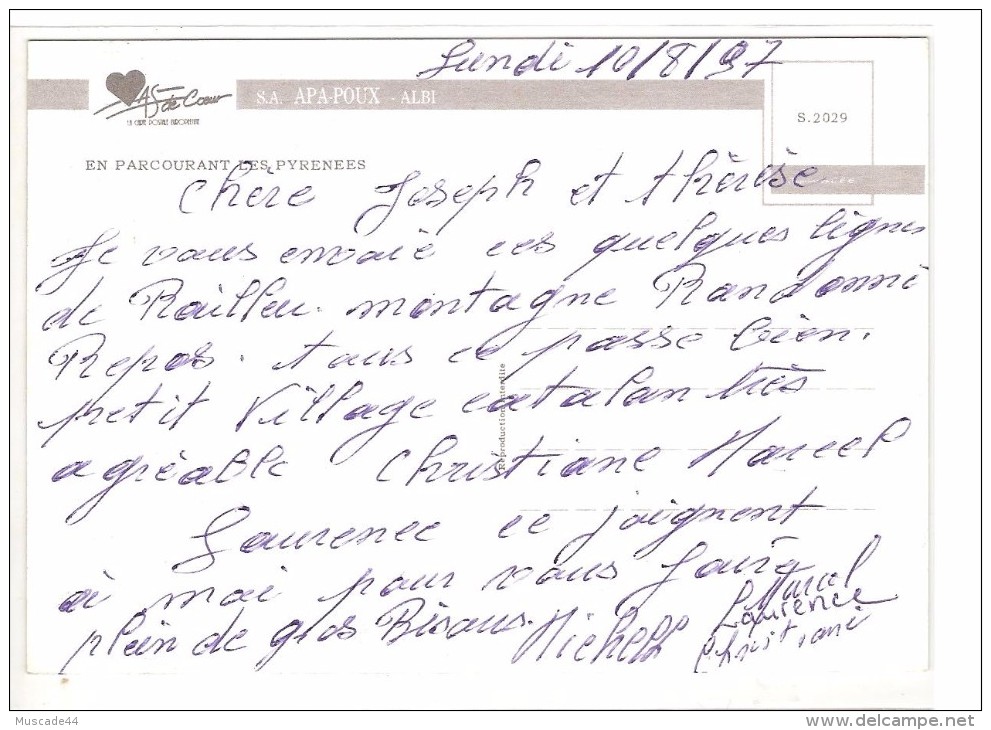 Lundi 10/8/97
AS de Coeur
LA CARTE POSTALE EUROPEENNE
S.A. APA-POUX - ALBI
S.2029
EN PARCOURANT LES PYRENEES
Chère Joseph et thérèse
Je vous envoie ces quelques lignes
de Railleu. montagne Randonné
Repos. tous ce passe bien.
petit Village catalan très
agréable Christiane Marcel
Laurence ce joignent
à moi pour vous faire
plein de gros Bisous. Michelle
Marcel
Laurence
Christiane
Reproduction interdite
Muscade44
www.delcampe.net